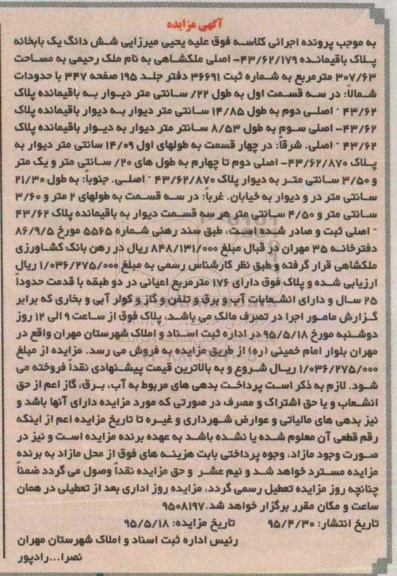 آگهی مزایده
به موجب پرونده اجرائی کلاسه فوق علیه یحیی میرزایی شش دانگ یک بابخانه
پلاک باقیمانده ۴۳/۶۲/۱۷۹- اصلی ملکشاهی به نام ملک رحیمی به مساحت
۳۰۷/۶۳ مترمربع به شماره ثبت ۳۶۶۹۱ دفتر جلد ۱۹۵ صفحه ۳۴۷ با حدودات
شمالا: در سه قسمت اول به طول ۲۲/ سانتی متر دیوار به باقیمانده پلاک
۴۳/۶۲ - اصلی دوم به طول ۱۴/۸۵ سانتی متر دیوار به دیوار باقیمانده پلاک
۴۳/۶۲- اصلی سوم به طول ۸/۵۳ سانتر متر دیوار به دیوار باقیمانده پلاک
۴۳/۶۲ - اصلی. شرقا: در چهار قسمت به طولهای اول ۱۴/۰۹ سانتی متر دیوار به
پلاک ۴۳/۶۲/۸۷۰- اصلی دوم تا چهارم به طول های ۲۰/ سانتی متر و یک متر
و ۳/۵۰ سانتی متر به دیوار پلاک ۴۳/۶۲/۸۷۰ - اصلی. جنوبا: به طول ۲۱/۳۰
سانتی متر در و دیوار به خیابان. غربا: در سه قسمت به طولهای ۲ متر و ۳/۶۰
سانتی متر و ۴/۵۰ سانتی متر هر سه قسمت دیوار به باقیمانده پلاک ۴۳/۶۲
- اصلی ثبت و صادر شده است، طبق سند رهنی شماره ۵۵۶۵ مورخ ۸۶/۹/۵
دفترخانه ۳۵ مهران در قبال مبلغ ۸۴۸/۱۳۱/۰۰۰ ریال در رهن بانک کشاورزی
ملکشاهی قرار گرفته و طبق نظر کارشناس رسمی به مبلغ ۱/۰۳۶/۲۷۵/۰۰۰ ریال
ارزیابی شده و پلاک فوق دارای ۱۷۶ مترمربع اعیانی در دو طبقه با قدمت حدودا
۲۵ سال و دارای انشعابات آب و برق و تلفن و گاز و کولر آبی و بخاری که برابر
گزارش مامور اجرا در تصرف مالک می باشد، پلاک فوق از ساعت ۹ الی ۱۲ روز
دوشنبه مورخ ۹۵/۵/۱۸ در اداره ثبت اسناد و املاک شهرستان مهران واقع در
مهران بلوار امام خمینی (ره) از طریق مزایده به فروش می رسد. مزایده از مبلغ
۱/۰۳۶/۲۷۵/۰۰۰ ریال شروع و به بالاترین قیمت پیشنهادی نقدا فروخته می
شود. لازم به ذکر است پرداخت بدهی های مربوط به آب، برق، گاز اعم از حق
انشعاب و یا حق اشتراک و مصرف در صورتی که مورد مزایده دارای آنها باشد و
نیز بدهی های مالیاتی و عوارض شهرداری و غیره تا تاریخ مزایده اعم از اینکه
رقم قطعی آن معلوم شده یا نشده باشد به عهده برنده مزایده است و نیز در
صورت وجود مازاد، وجوه پرداختی بابت هزینه های فوق از محل مازاد به برنده
مزایده مسترد خواهد شد و نیم عشر و حق مزایده نقدا وصول می گردد ضمنا
چنانچه روز مزایده تعطیل رسمی گردد، مزایده روز اداری بعد از تعطیلی در همان
ساعت و مکان مقرر برگزار خواهد شد.۹۵۰۸۱۹۷
تاریخ انتشار: ۹۵/۴/۳۰ تاریخ مزایده: ۹۵/۵/۱۸
رئیس اداره ثبت اسناد و املاک شهرستان مهران
نصرا...رادپور